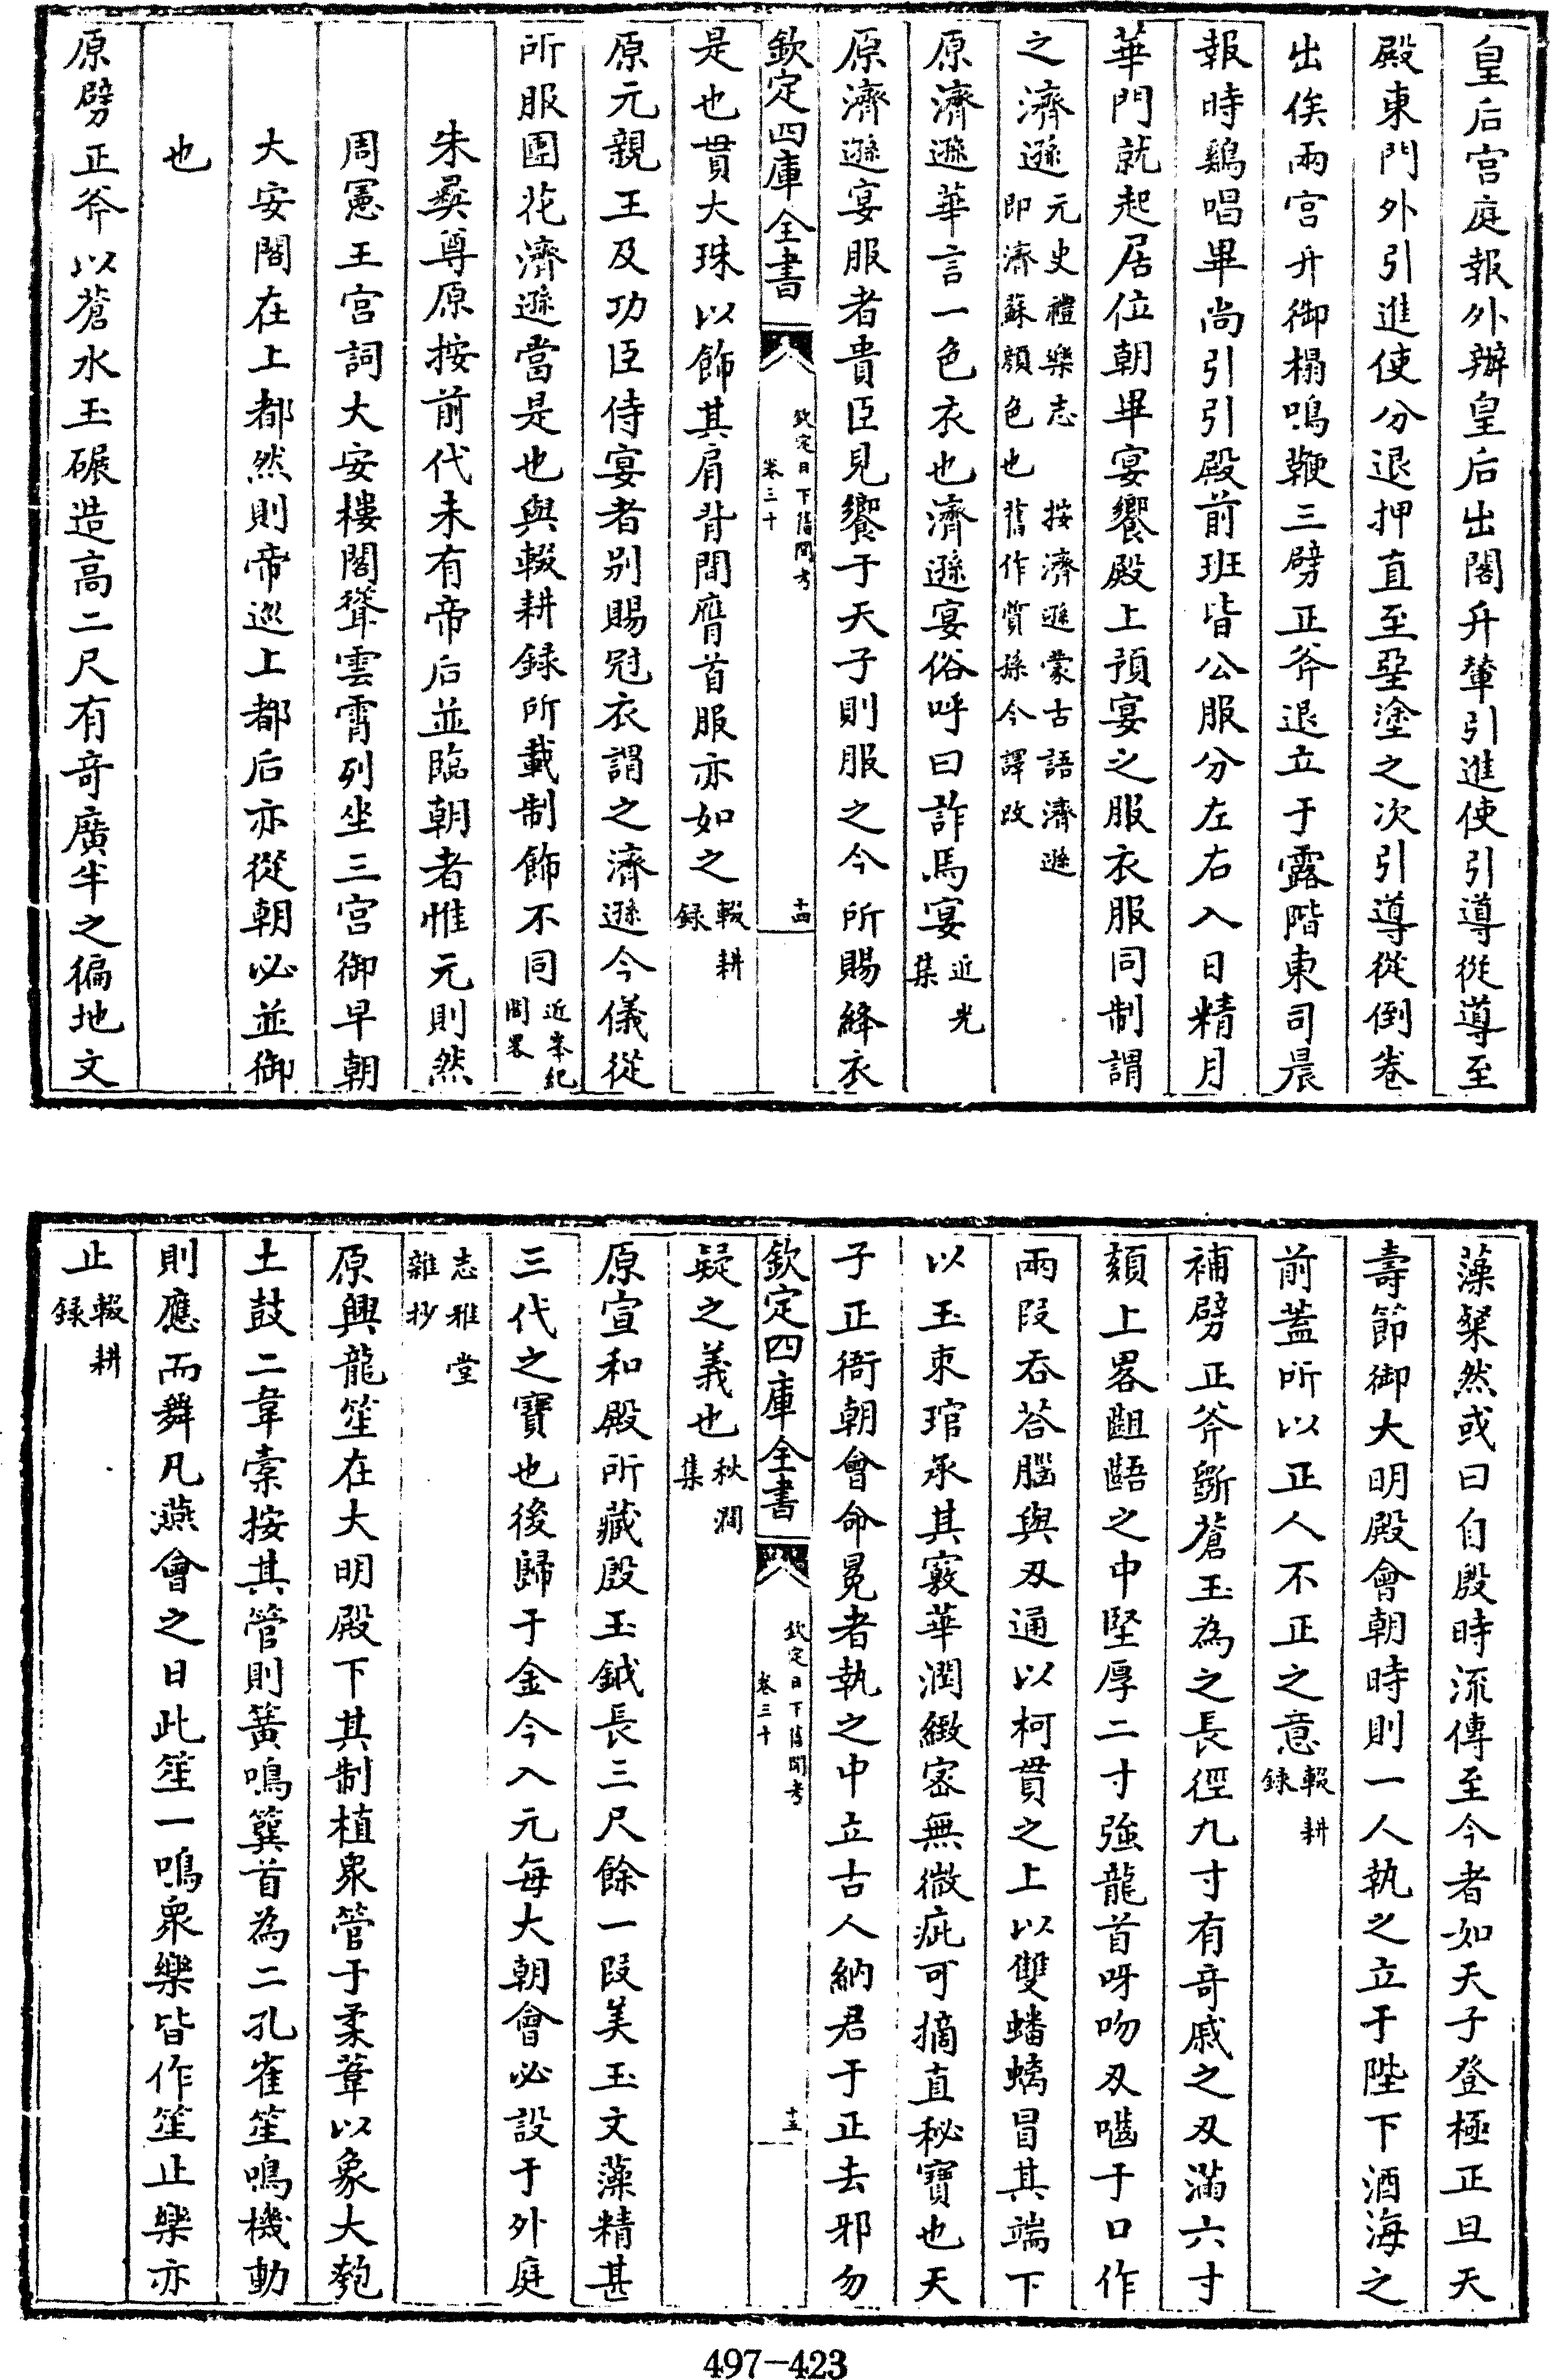 皇后宫庭報外辦皇后出閤升輦引進使引導從導至
殿東門外引進使分退押直至堊塗之次引導從倒卷
出俟兩宫升御榻鳴鞭三劈正斧退立于露階東司晨
報時鷄唱畢尚引引殿前班皆公服分左右入日精月
華門就起居位朝畢宴饗殿上預宴之服衣服同制謂
之濟遜元史禮樂志即濟蘇顔色也按濟遜蒙古語濟遜舊作質孫今譯改
原濟遜華言一色衣也濟遜宴俗呼曰詐馬宴近光集
原濟遜宴服者貴臣見饗于天子則服之今所賜絳衣
欽定四庫全書 欽定日下舊聞考卷三十 十四
是也貫大珠以飾其肩背間膺首服亦如之輟耕録
原元親王及功臣侍宴者别賜冠衣謂之濟遜今儀從
所服團花濟遜當是也與輟耕録所載制飾不同近峯紀聞畧
朱彜尊原按前代未有帝后並臨朝者惟元則然
周憲王宫詞大安樓閣聳雲霄列坐三宫御早朝
大安閣在上都然則帝巡上都后亦從朝必並御
也
原劈正斧以蒼水玉碾造高二尺有奇廣半之徧地文
藻粲然或曰自殷時流傳至今者如天子登極正旦天
壽節御大明殿會朝時則一人執之立于陛下酒海之
前蓋所以正人不正之意輟耕録
補劈正斧斲蒼玉為之長徑九寸有奇戚之刄滿六寸
頦上畧齟齬之中堅厚二寸強龍首呀吻刄嚙于口作
兩段吞荅腦與刄通以柯貫之上以雙蟠螭冒其端下
以玉束琯承其竅華潤緻宻無微疵可摘直秘寶也天
子正衙朝會命冕者執之中立古人納君于正去邪勿
欽定四庫全書 欽定日下舊聞考卷三十 十五
疑之義也秋澗集
原宣和殿所藏殷玉鉞長三尺餘一段美玉文藻精甚
三代之寶也後歸于金今入元每大朝會必設于外庭
志雅堂雜抄
原興龍笙在大明殿下其制植衆管于柔葦以象大匏
土鼓二韋橐按其管則簧鳴簨首為二孔雀笙鳴機動
則應而舞凡燕會之日此笙一鳴衆樂皆作笙止樂亦
止輟耕録
497-423